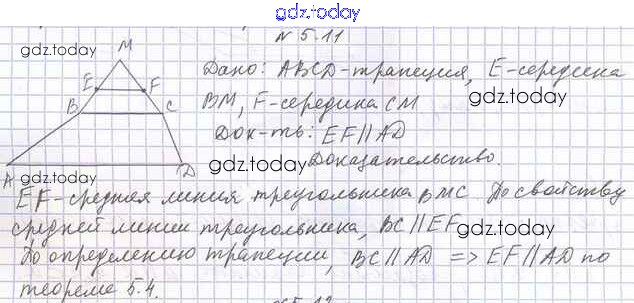 gdz.today
N 5.11
M
gdz.today
Дано: ABCD-трапеция, E-середина
E F
gdz.today
B C
BM, F-середина CM
Док-ть: EF || AD
A D
gdz.today
Доказательство.
EF-средняя линия треугольника BMC. По свойству
средней линии треугольника, BC || EF
gdz.today
По определению трапеции, BC || AD => EF || AD по
теореме 5.4.